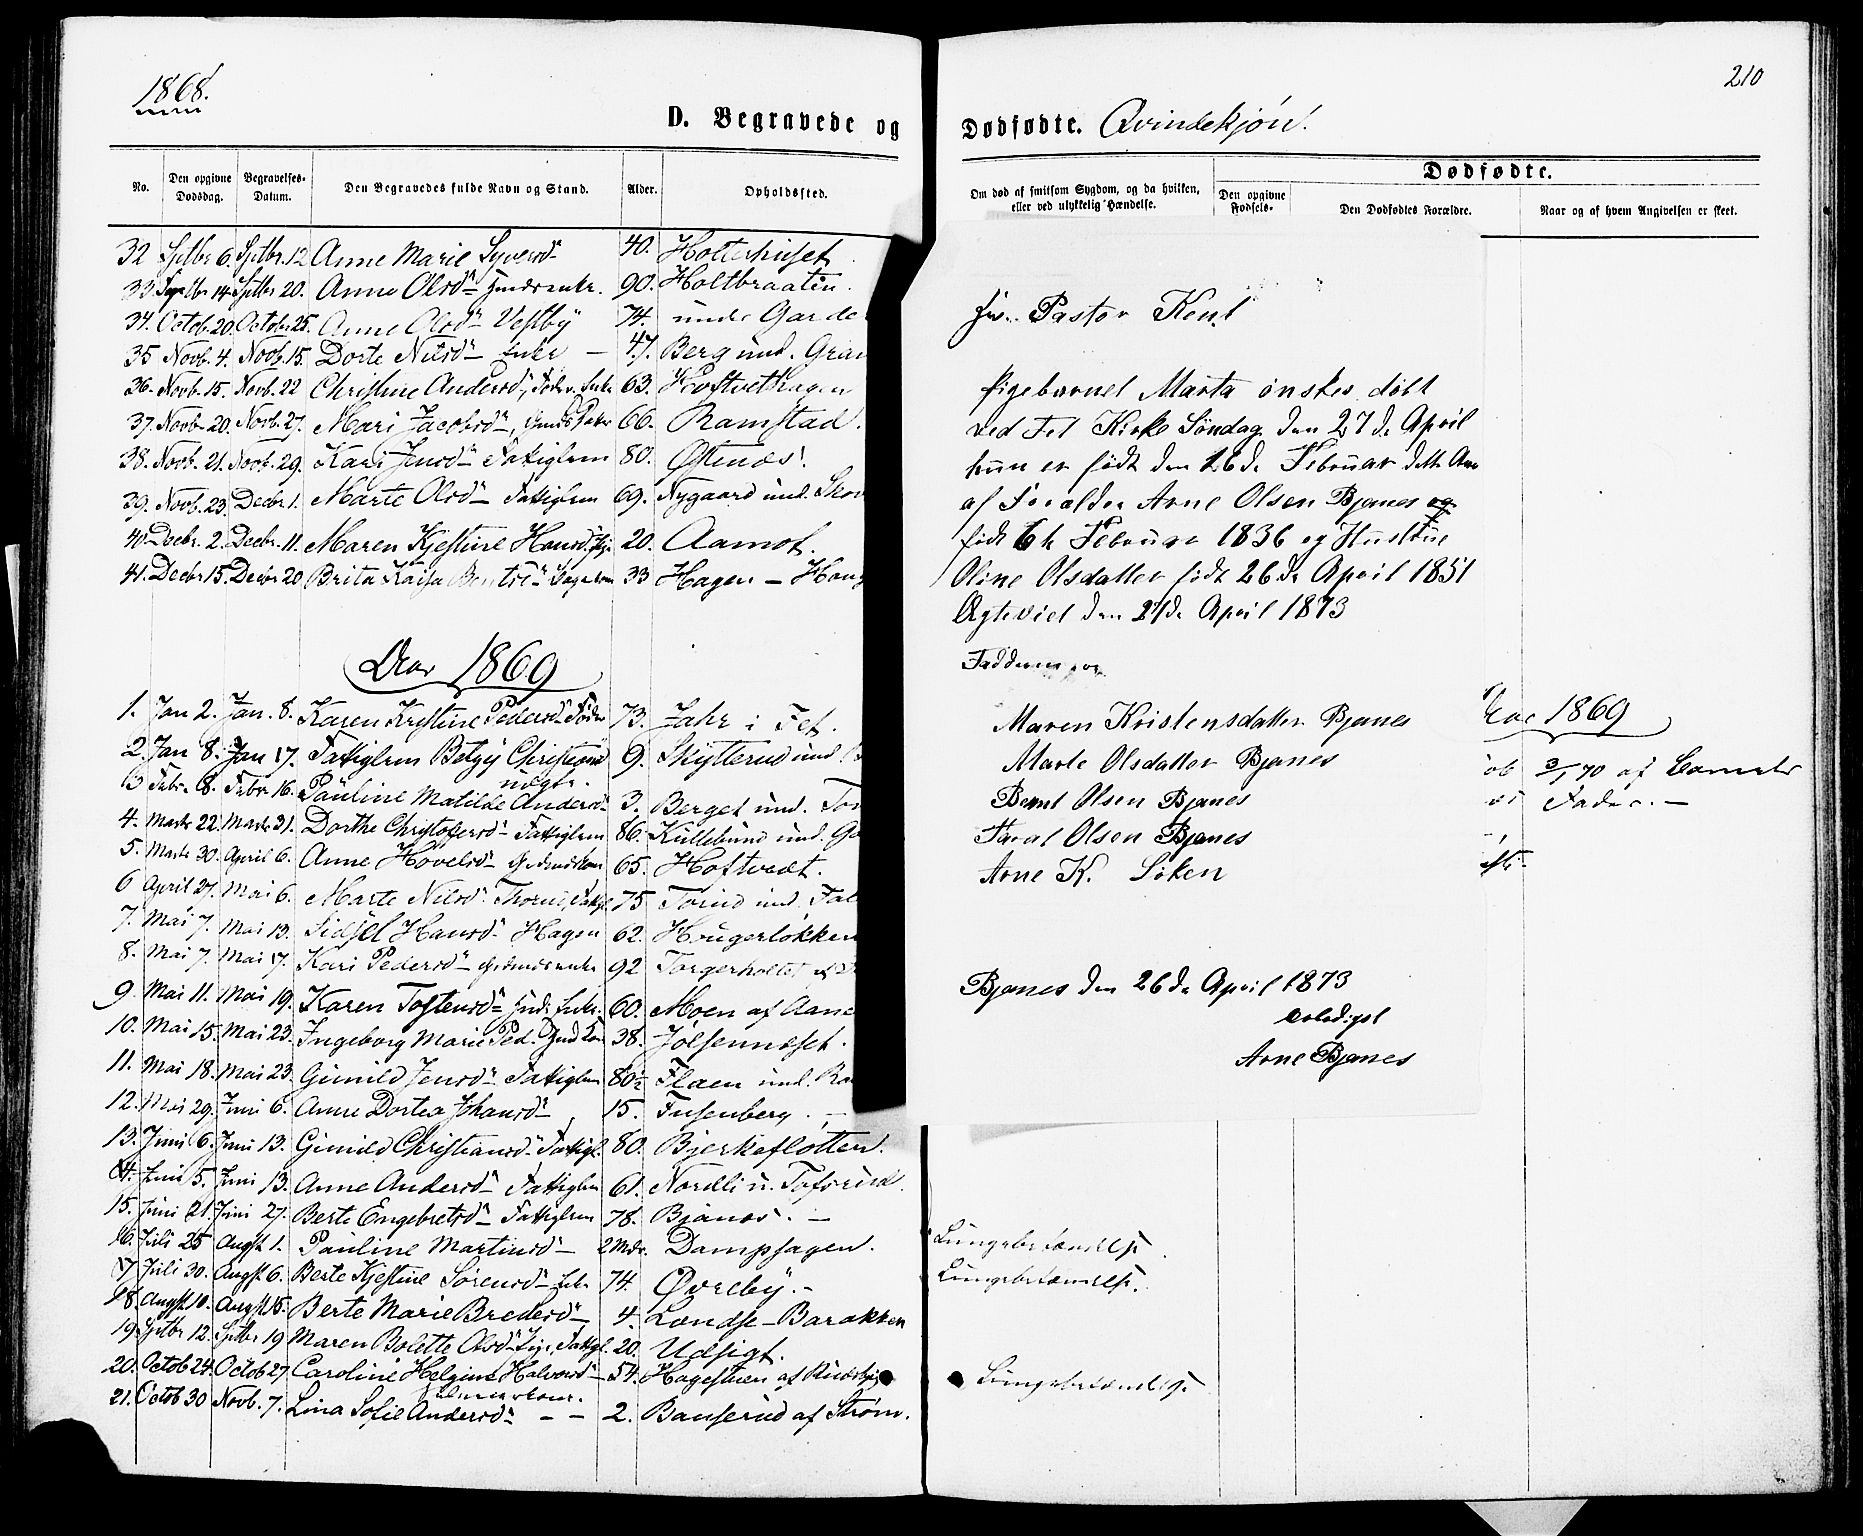 1868.
D. Begravede og
No.
Den opgivne Dødsdag.
Begravelses-Datum.
Den Begravedes fulde Navn og Stand.
Alder.
Opholdssted.
32 Sptbr 6. Sptbr. 12 Anne Marie Syversd 40. Holterhuset
33. Septbr 14. Sptbr 20. Anne Olsd 90. Holtbraaten.
34. Octob. 20. Octobr 25. Anne Olsd Vestby 74. under Garde
35 Novb. 4. Novb. 15. Dorte Nilsd Enke – 47. Berg und. Gran
36. Novb. 15. Novb. 22 Christine Andersd, Enke 63. Hoftvethagen
37. Novb. 20. Novb. 27. Mari Jacobsd, 66. Ramstad.
38. Novb. 21. Novb. 29. Kari Jensd Fattiglem 80. Østnæs.
39. Novb. 23. Decbr. 1. Marte Olsd Fattiglem 69. Nygaard und. Skov
40. Decbr. 2. Decbr. 11. Maren Kjestine Hansd. Pige 20. Aamot.
41. Decbr 15. Decbr 20 Brita Kaisa 33 Hagen – Haug
Aar 1869
1. Jan 2. Jan. 8. Karen Kristine Pedersd 73. Jahr i Fet.
2. Jan 8. Jan 17. Fattiglem Betzy Christians 9. Skytterud und
uægte.
3 Febr. 8. Febr 16. Pauline Matilde Andersd 3. Berget und.
4. Marts 22. Marts 31. Dorthe Christofersd Fattiglem 86. Kullebund und.
5. Marts 30. April 6. Anne Hovelsd 65. Hoftvedt.
6 April 27. Mai 6. Marte Nilsd 75 und.
7. Mai 7. Mai 13. Sidsel Hansd Hagen 62. Haugerløkken
8. Mai 7. Mai 17. Kari Pedersd 92 Torgerholtet
9. Mai 11. Mai 19. Karen Tostensd Enke. 60. Moen af
10. Mai 15. Mai 23. Ingeborg Marie Ped. 38. Jølsenneset.
11. Mai 18. Mai 23. Gunild Jensd Fattiglem 80½ Flaen und.
12. Mai 29. Juni 6. Anne Dortea Johansd 15. Fusenberg. –
13. Juni 6. Juni 13. Gunild Christiansd Fattigl. 80. Bjerkefløtten.
14. Juni 5. Juni 13. Anne Andersd Fattiglem 61. Nordli u. Tofsrud.
15. Juni 21. Juni 27. Berte Engebretsd Fattiglem 78. Bjanes. –
16. Juli 25 Augst 1. Pauline Martinsd 2 Mdr. Dampsagen.
17 Juli 30. Augst. 6. Berte Kjestine Sørensd Enke 74. Øvreby. –
18. Augst. 10. Augst 15. Berte Marie Bredesd 4. Londse-Barakken
19. Sptbr 12. Sptbr 19 Maren Bolette Olsd Pige, Fattigl. 20. Udsigt.
20. Octob 24. Octob 27. Caroline Helgine Halvorsd 54. Hagestuen af
21. Octob 30 Novb. 7. Lina Sofie Andersd – – 2. Banserud af Strøm.
210
Dødfødte. Qvindekjøn.
Om død af smitsom Sygdom, og da hvilken, eller ved ulykkelig Hændelse.
Dødfødte.
Den opgivne Fødsels-
Den Dødfødtes Forældre.
Naar og af hvem Angivelsen er skeet.
Hr. Pastor Kent
Pigebarnet Marta ønskes døbt
ved Fet Kirke Søndag den 27de April
hun er født den 16de Februar dette Aar
af Foralder Arne Olsen Bjanes og
født 6te Februar 1836 og Hustrue
Oline Olsdatter født 26de April 1851
Ægteviet den 27de April 1873
Fadderne
Maren Kristensdatter Bjanes
Marte Olsdatter Bjanes
Bernt Olsen Bjanes
Olsen Bjanes
Arne K. Søken
Aar 1869
3/1 70 af
Fader. –
Bjanes den 26de April 1873
Ærbødigst
Arne Bjanes
Lungebetændelse
Lungebetændelse.
Lungebetændelse